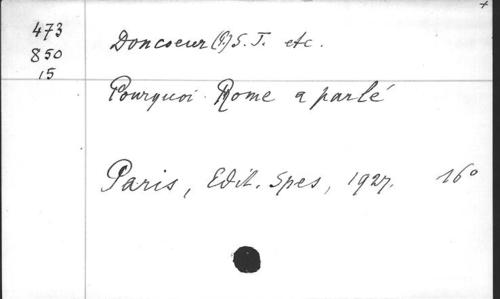 473
850
15
Doncoeur (P.) S. J. etc.
Pourquoi Rome a parlé
Paris, Edit. Spes, 1927. 16°